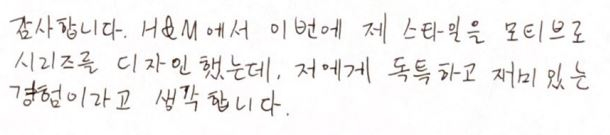 감사합니다. H&M에서 이번에 제 스타일을 모티브로
시리즈를 디자인했는데, 저에게 독특하고 재미있는
경험이라고 생각합니다.